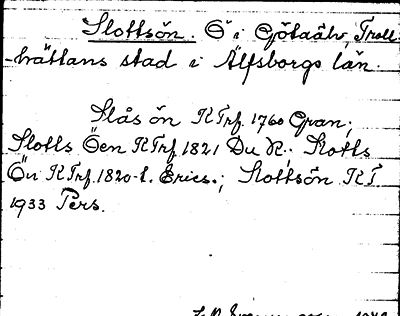 Slottsön. Ö i Götaälv, Troll-
hättans stad i Älfsborgs län.
Slås ön KTrf. 1760 Gran;
Slotts Öen KTrf 1821 Du R.; Slotts
Ön KTrf. 1820-t. Erics.; Slottsön KT
1933 Pers.